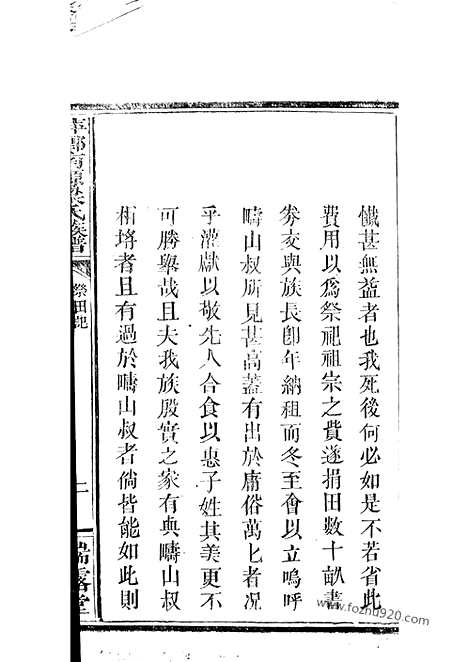 懺甚無益者也我死後何必如是不若省此
費用以爲祭祀祖宗之費遂捐田數十畝書
券交與族長卽年納租而冬至會以立嗚呼
疇山叔所見甚高蓋有出於庸俗萬匕者况
乎灌獻以敬先人合食以惠子姓其美更不
可勝舉哉且夫我族殷實之家有與疇山叔
相埒者且有過於疇山叔者倘皆能如此則
氏族譜
祭田記
二
堂
www.fozhu920.com